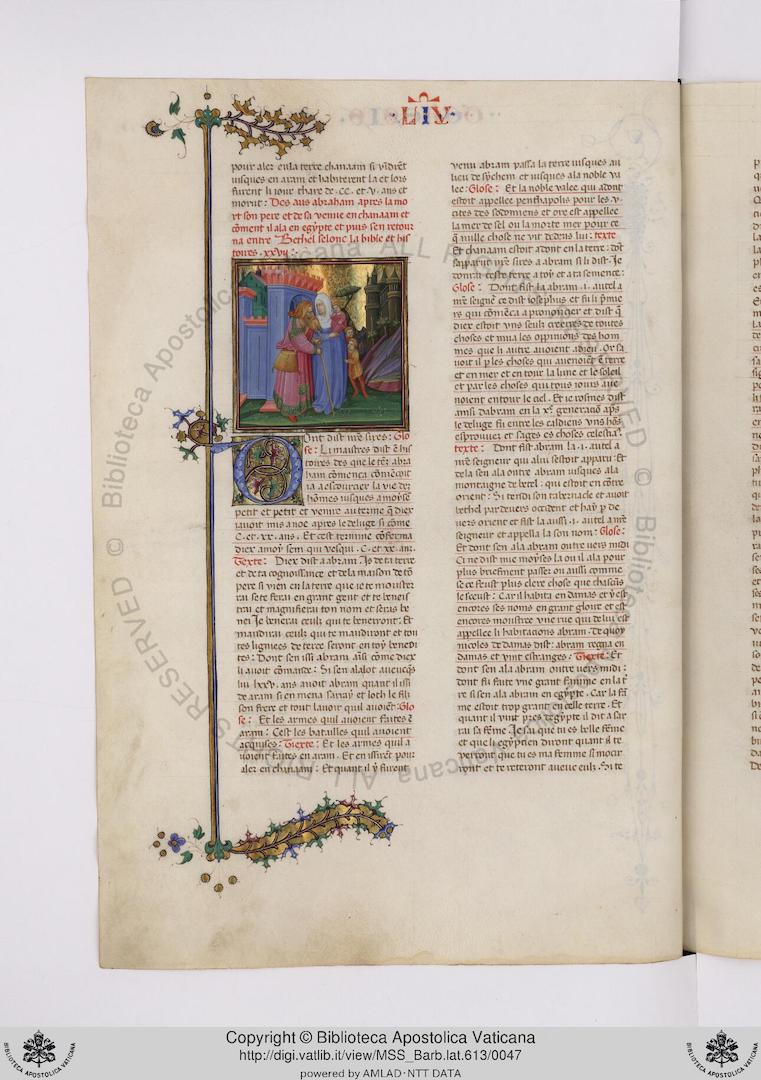 LIV
pour aler en la terre chanaam si vīdrēt
iusques en aram et habiterent la et lors
furent li iour thare de .CC. et .v. ans et
morut : Des aus abraham apres la mo
rt son pere et de sa venue en chanaam et
cōment il ala en egypte et puis sen retour
na entre Bethel selonc la bible et his
toires .xxvij :
Ont dist nrē sires : Glo
se : Li maistres dist ē his
toires des que le tēp abra
ham cōmenca cōmēcoit
ia a escourcier la vie des
hōmes iusques a moyse
petit et petit et venir au terme q̄ diex
lauoit mis a noe apres le deluge si cōme
.C. et .xx. ans . Et cest termine cōferma
diex amoy sem qui vesqui .C. et .xx. anz
Texte : Diex dist a abram . Is de ta terre
et de ta cognoissance et de la maison de tō
pere si vien en la terre que ie te monstre
rai se te ferai en grant gent et te beneis
trai et magnifierai ton nom et seras be
nei Je benerai ceulz qui te benerront : Et
maudirai ceulz qui te maudiront et tou
tes lignies de terre seront en toy beneoi
tes : Dont sen issi abram aīsi cōme diex
li auoit cōmande : Si sen alalot auecq̄s
lui lxxv. ans auoit abram quant il issi
de aram si en mena sarray et loth le fil
son frere et tout lauoir quil auoiēt : Glo
se : Et les armes quil auoient faites ē
aram : Cest les batailles quil auoient
acquises : Tiexte : Et les armes quil a
uoient faites en aram . Et en issirēt pour
aler en chanaam : Et quant il y furent
venu abram passa la terre iusques au
lieu de sychem et iusques a la noble va
lee : Glose : Et la noble valee qui adont
estoit appellee penthapolis pour les .v.
cites des sodomiens et ore est appellee
la mer de sel ou la morte mer pour ce
q̄ nulle chose ne vit dedens lui : texte
Et chanaam estoit adont en la terre : dōt
sapparut nrē sires a abram si li dist : Je
donrai ceste terre a toy et a ta semence :
Glose : Dont fist la abram .i. autel a
nrē seignē ce dist iosephus et fu li p̄mie
rs qui cōmēca a prononcier et dist q̄
diex estoit vns seulz creeres de toutes
choses et mua les oppinions des hom
mes que li autre auoient a dieu . Or sa
uoit il p̄ les choses qui auenoiēt ē terre
et en mer et en tout la lune et le soleil
et par les choses qui tous iours aue
noient entour le ciel . Et ie iosines dist
ainsi dabram en la .xe. generaciō aps̄
le deluge fu entre les caldiens vns hōs
esprouuez et sages es choses celestiaus
texte : Dont fist abram la .i. autel a
nrē seigneur qui a lui sestoit apparu : Et
de la sen ala outre abram iusques a la
montaigne de betel : qui estoit en cōtre
orient : Si tendi son tabernacle et auoit
bethel par deuers occident et hay p̄ de
uers orient et fist la aussi .i. autel a nrē
seigneur et appella la son nom : Glose :
Et dont sen ala abram outre uers midi
Ci ne dist mie moyses la ou il ala pour
plus briefment passer ou aussi comme
se ce feust plus clere chose que chascūs
le sceust : Car il habita en damas et y est
encores ses noms en grant gloire et est
encores monstree vne rue qui de lui est
appellee li habitacions abram . De quoy
nicoles de damas dist : abram regna en
damas et vint estranges : Tiexte : Et
dont sen ala abram outre uers midi :
dont fu faite vne grant famine en la t̄
re si sen ala abram en egypte . Car la fā
me estoit trop grant en celle terre . Et
quant il vint pres degypte il dit a sar
rai sa fēme . Je sai que tu es belle fēme
et que li egyptien diront quant il te
verront que tu es ma femme si mocir
ront et te reteront aueuc eulz . Si te
Copyright © Biblioteca Apostolica Vaticana
http://digi.vatlib.it/view/MSS_Barb.lat.613/0047
powered by AMLAD·NTT DATA